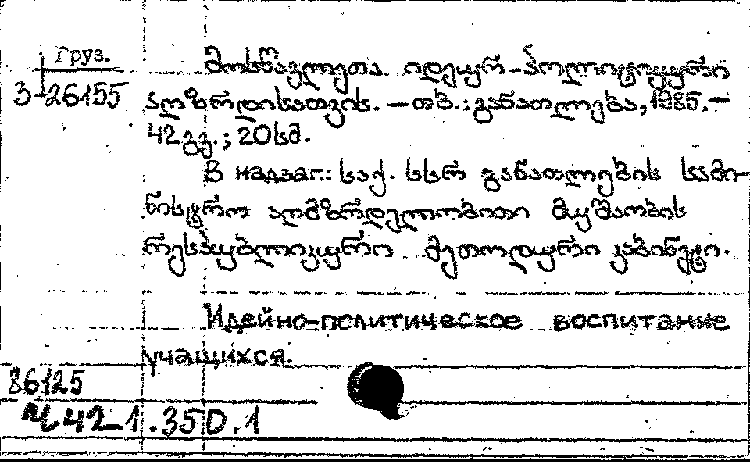 Груз.
3-26155
მოსწავლეთა იდეურ-პოლიტიკური
აღზრდისათვის. – თბ.: განათლება, 1985. –
42 გვ.; 20 სმ.
В надзаг.: საქ. სსრ განათლების სამი-
ნისტრო აღმზრდელობითი მუშაობის
რესპუბლიკური მეთოდური კაბინეტი.
Идейно-политическое воспитание
учащихся.
86125
Ч42-1.350.1